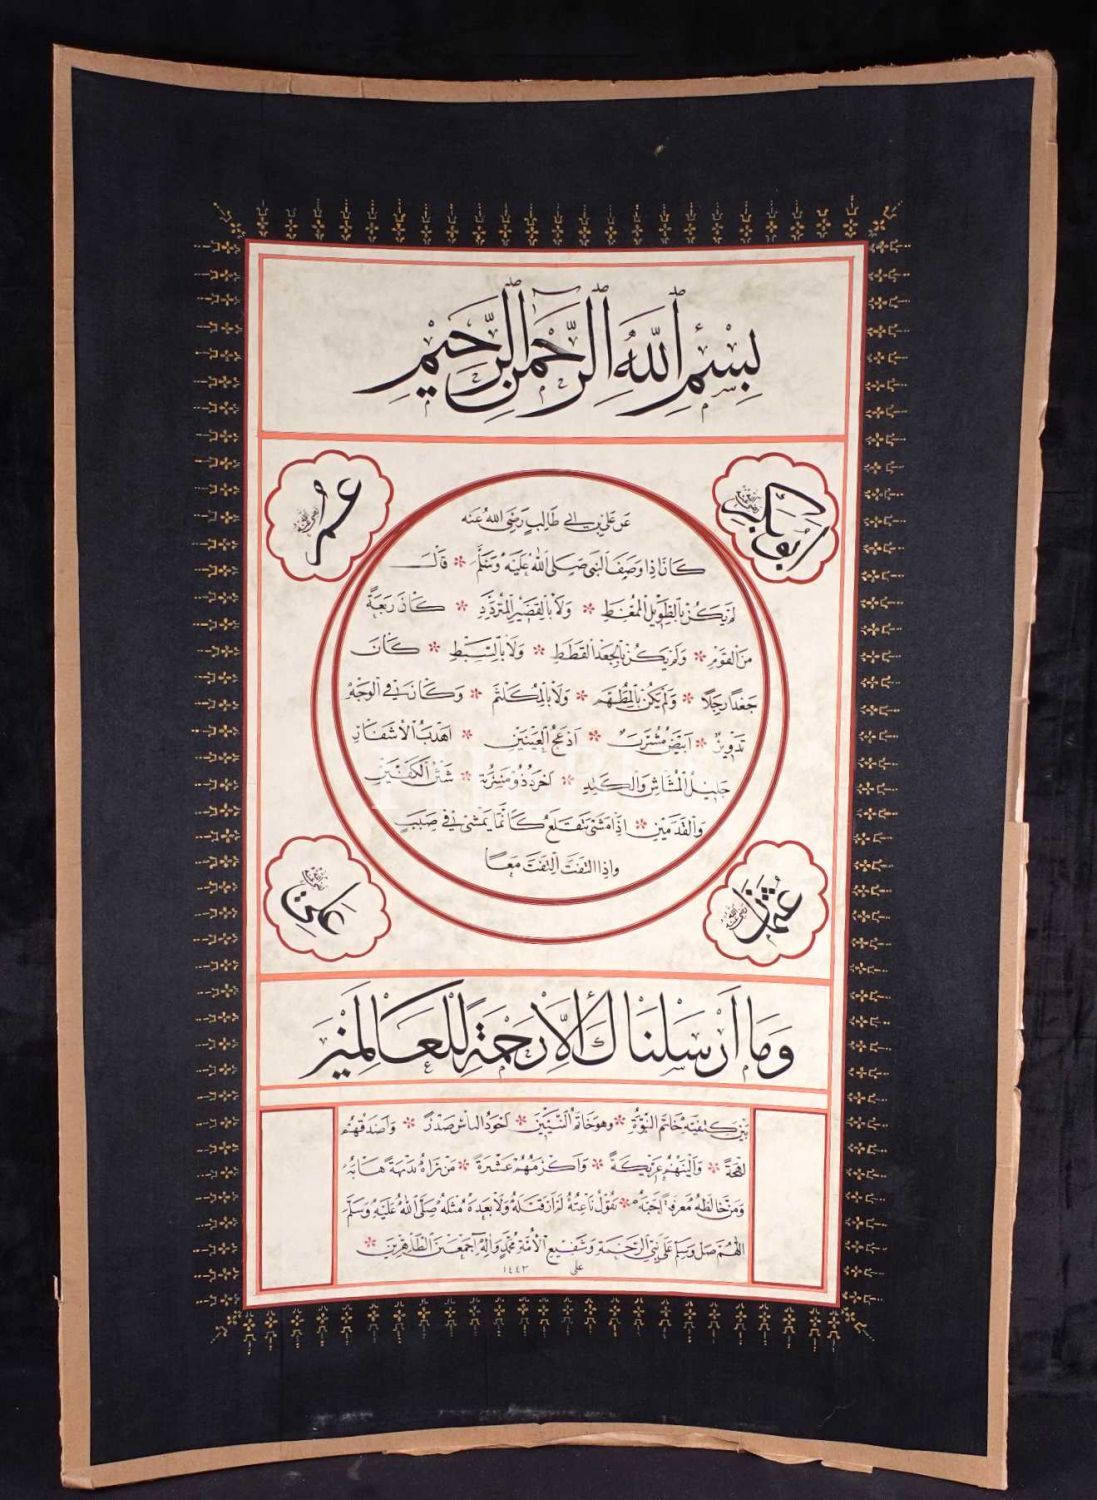 بِسْمِ اللهِ الرَّحْمٰنِ الرَّحِيمِ
ابوبكر رضي الله عنه
عمر رضي الله عنه
عن علي بن ابي طالب رضي الله عنه
كان اذا وصف النبي صلى الله عليه وسلم * قال
لم يكن بالطويل الممغط * ولا بالقصير المتردد * كان ربعة
من القوم * ولم يكن بالجعد القطط * ولا بالسبط * كان
جعدا رجلا * ولم يكن بالمطهم * ولا بالمكلثم * وكان في الوجه
تدوير * ابيض مشرب * ادعج العينين * اهدب الاشفار
جليل المشاش والكتد * اجرد ذو مسربة * شثن الكفين
والقدمين * اذا مشى تقلع كانما يمشي في صبب
واذا التفت التفت معا
عثمان رضي الله عنه
علي
وَمَا اَرْسَلْنَاكَ اِلَّا رَحْمَةً لِلْعَالَمِينَ
بين كتفيه خاتم النبوة * وهو خاتم النبيين * اجود الناس صدرا * واصدقهم
لهجة * والينهم عريكة * واكرمهم عشرة * من رآه بديهة هابه
ومن خالطه معرفة احبه * يقول ناعته لم ار قبله ولا بعده مثله صلى الله عليه وسلم
اللهم صل وسلم على نبي الرحمة وشفيع الامة محمد وآله اجمعين الطاهرين *
علي ١٤٤٣